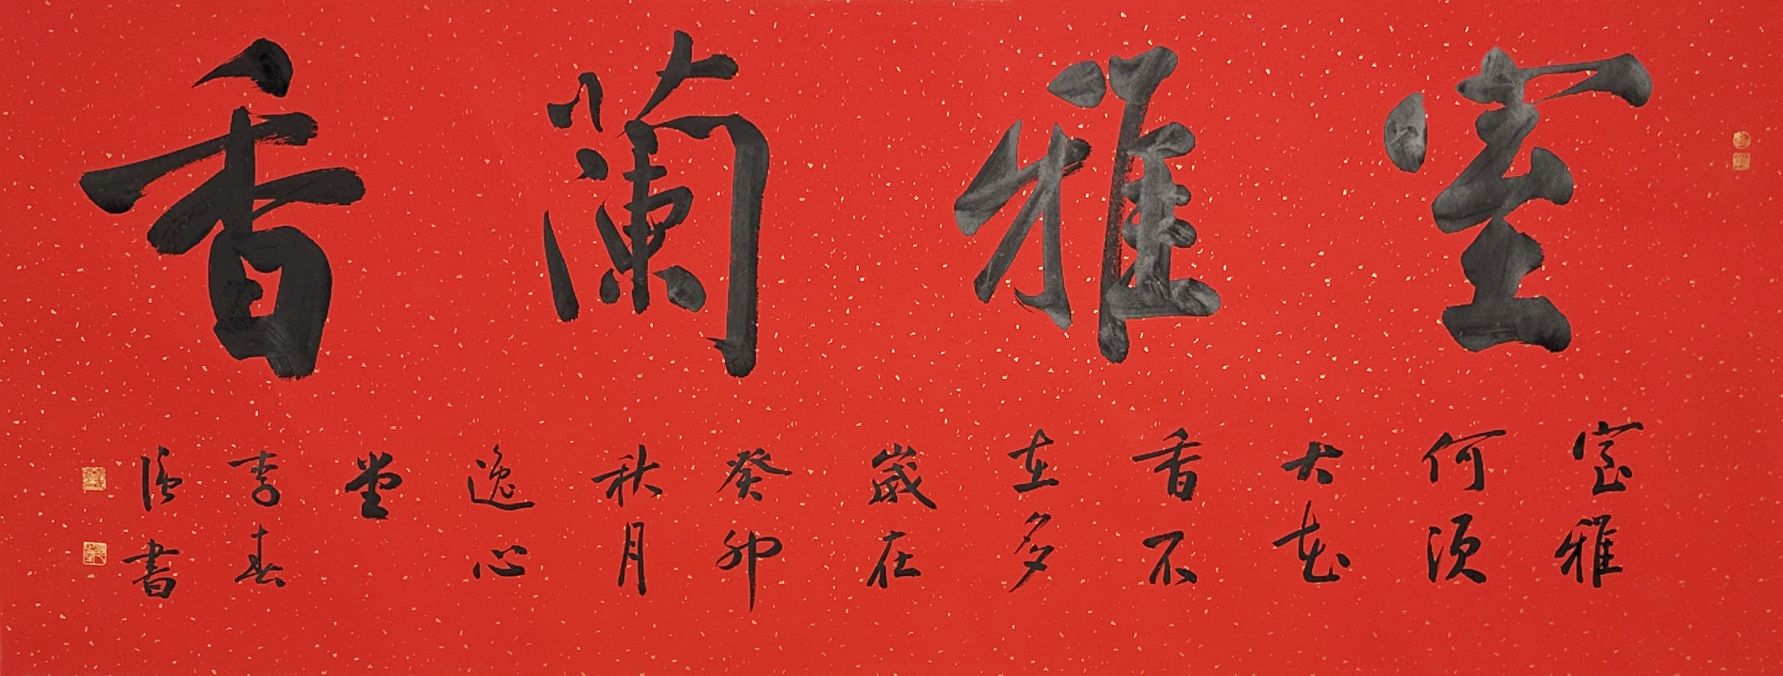 室雅蘭香
室雅
何須
大花
香不
在多
歲在
癸卯
秋月
逸心
堂
李春
書